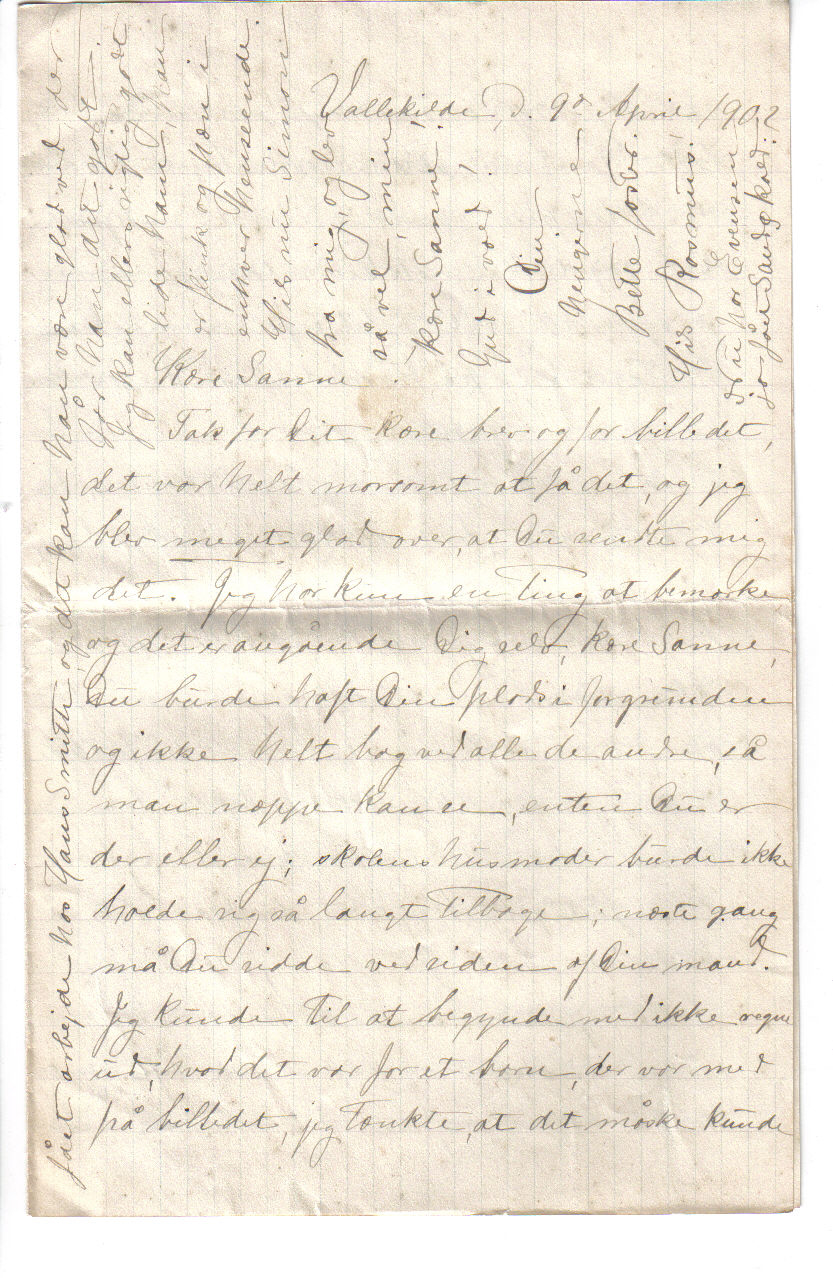 Vallekilde, d. 9de April 1902
Kære Sanne.
Tak for Dit kære brev og for billedet,
det var helt morsomt at få det, og jeg
blev meget glad over, at Du sendte mig
det. Jeg har kun en ting at bemærke
og det er angående Dig selv, kære Sanne,
Du burde haft Din plads i forgrunden
og ikke helt bag ved alle de andre, så
man næppe kan se, enten Du er
der eller ej; skolens husmoder burde ikke
holde sig så langt tilbage; næste gang
må Du sidde ved siden af Din mand.
Jeg kunde til at begynde med ikke regne
ud, hvad det var for et barn, der var med
på billedet, jeg tænkte, at det måske kunde
fået arbejde hos Hans Smith, og det kan han være glad ved der
har han det godt.
Jeg kan ellers rigtig godt
lide ham, han
er flink og pæn i
enhver henseende.
Hils nu Simon
fra mig, og lev
så vel, min
kære Sanne!
Gud i vold!
Din
hengivne
Bette faster.
Hils Rasmus!
du har Evensen
jo fået Sandkaed.